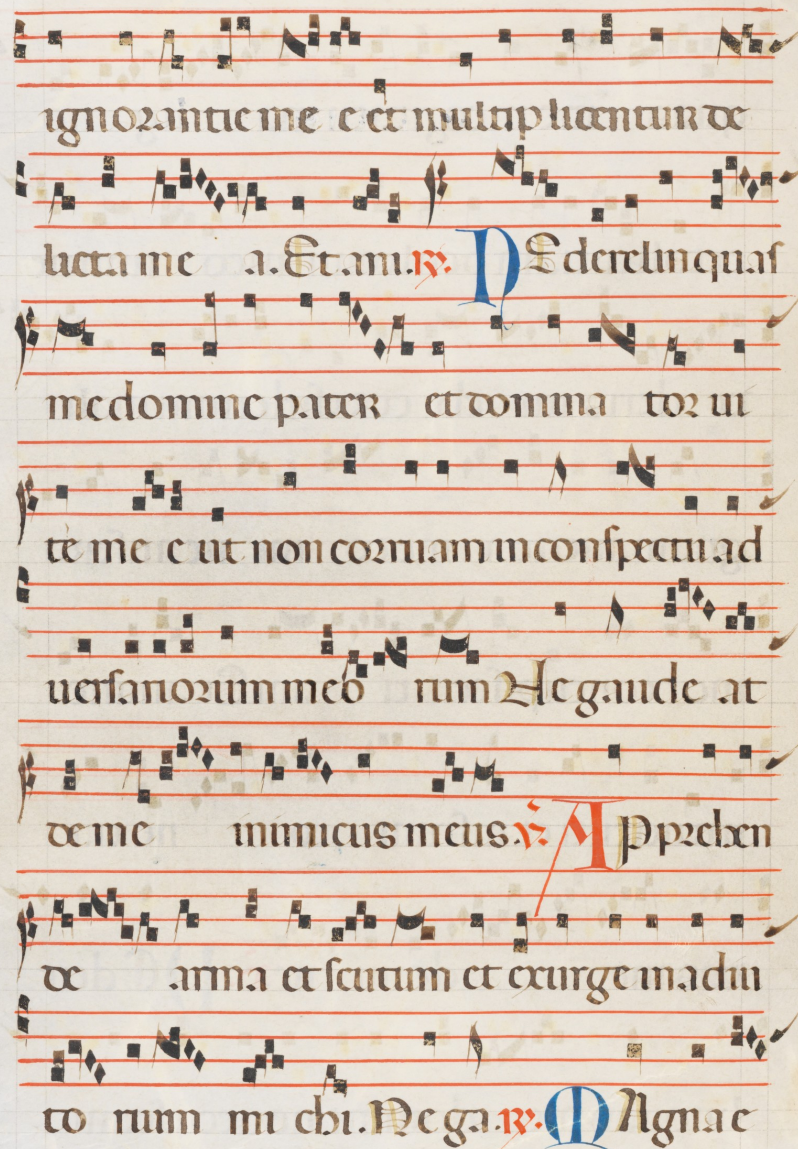 ignorantie me e et multiplicentur de
licta me a. Et ani. ℟. NE derelinquas
me domine pater et domina tor ui
te me e ut non corruam in conspectu ad
uersariorum meo rum Ne gaude at
de me inimicus meus. ℣. APprehen
de arma et scutum et exurge in adiu
to rium mi chi. Ne ga. ℟. MAgna e